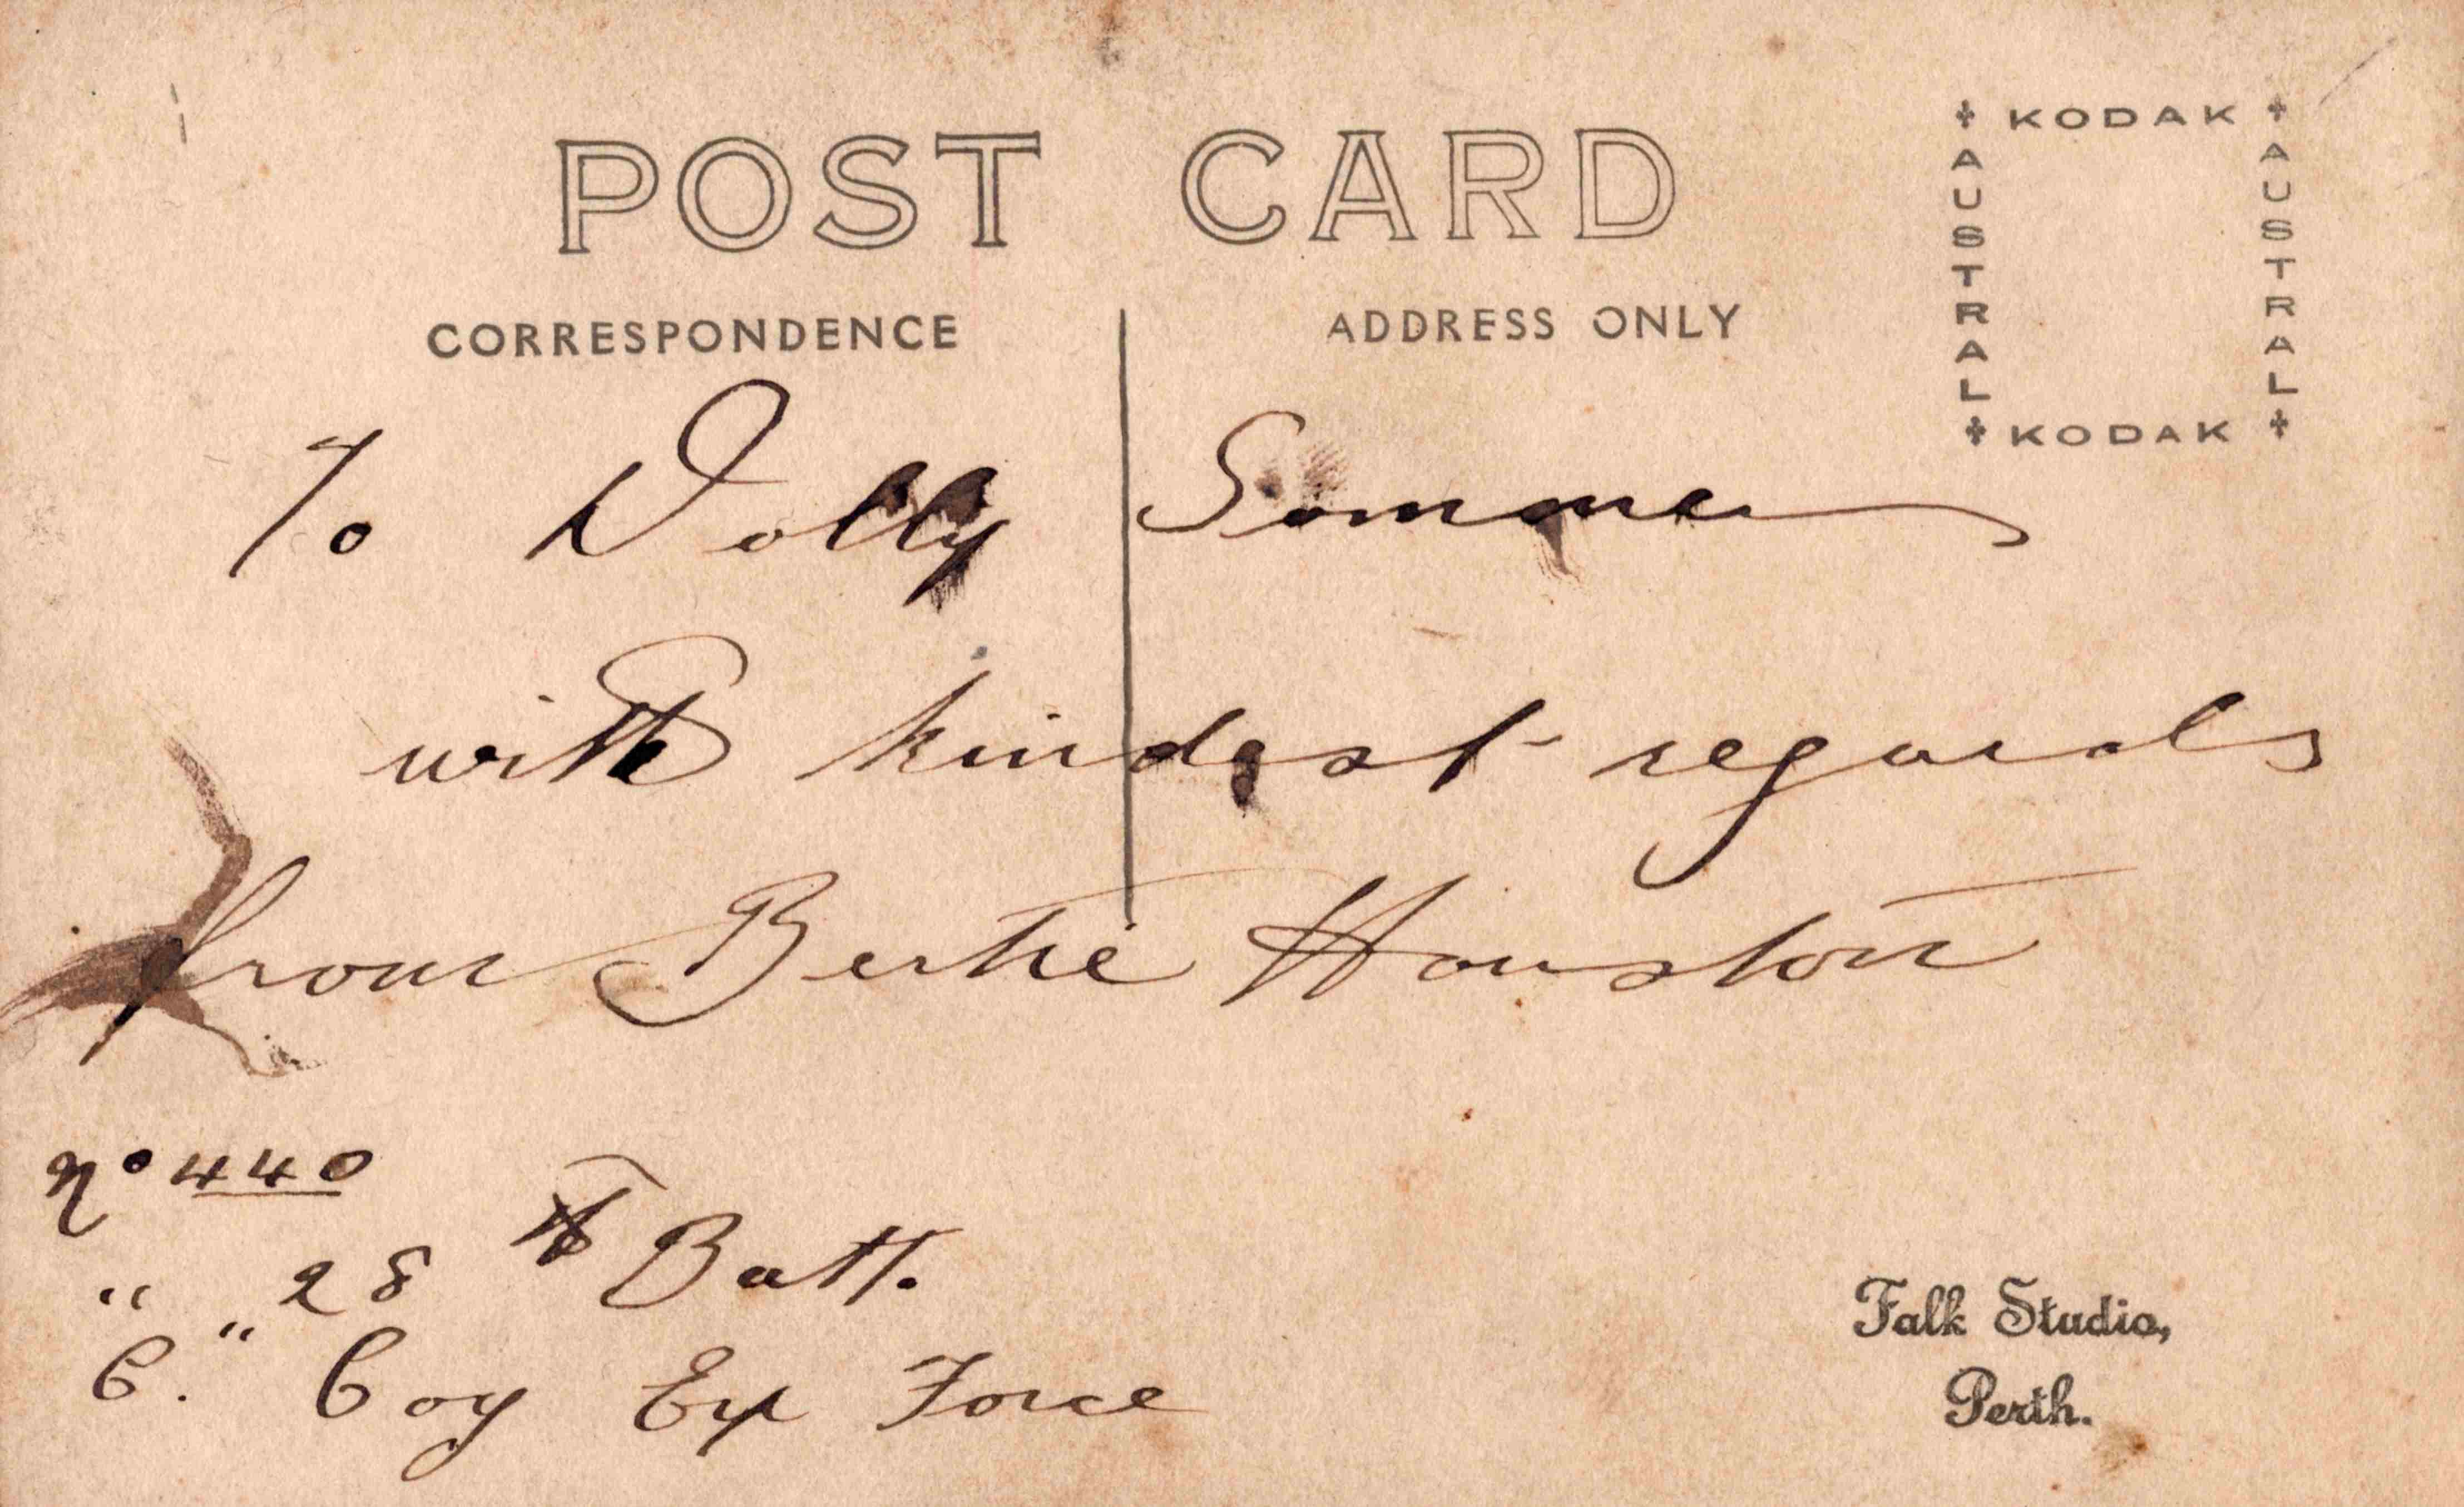 POST CARD
KODAK
AUSTRAL
AUSTRAL
KODAK
CORRESPONDENCE
ADDRESS ONLY
To Dolly
with kindest regards
from Bertie Houston
No 440
" 28th Batt.
"C." Coy Ex Force
Falk Studio,
Perth.